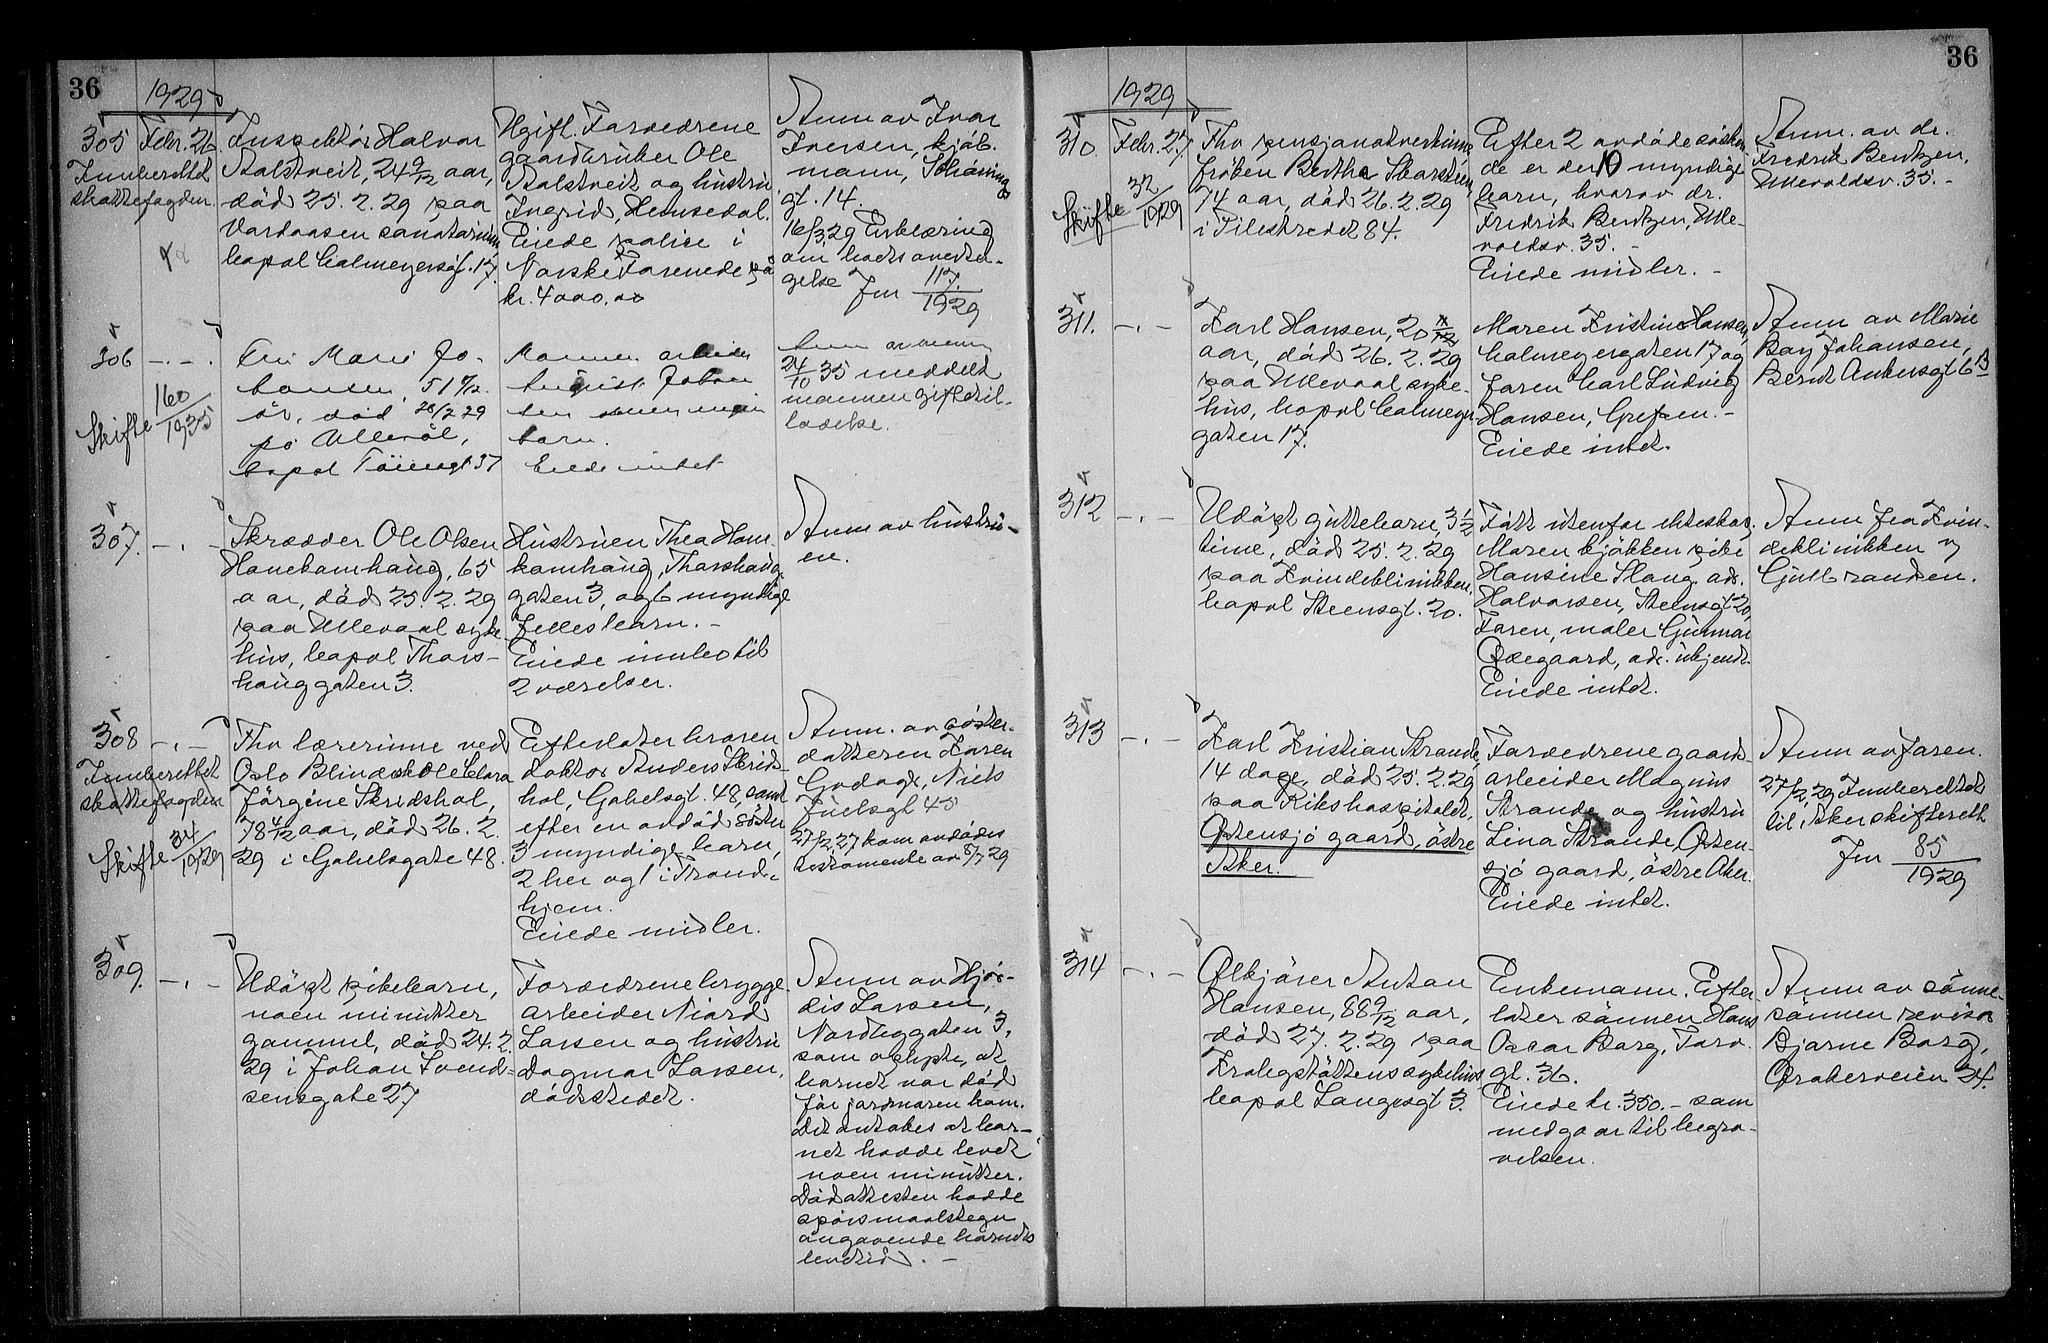 36
1929
305 Febr. 26.
Innberettet
skattefogden.
Inspektör Halvor
aar,
död 25. 2. 29 paa
Vardaasen sanatorium
bopæl Calmeyersgt. 17.
Ugift. Forældrene
gaardbruker Ole
og hustru
Ingrid, Hemsedal.
Eiede polise i
Norske Forenede på
kr. 4000.00
Anm av Ivar
Iversen, kjöb-
mann, Schönings
gt. 14.
16/3 29 Erklæring
om bodsoverta-
gelse Jnr 117/1929
306 -.-.
Skifte 160/1935
Fru Marie Jo-
hansen, 51
år, död 26/2 29
på Ullevål,
bopæl Töiengt 37
Mannen arbeider
August Johan
sen
barn.
Eiede intet
Anm av mannen
24/10 35 meddelt
mannen
ladelse.
307. -.-
Skrædder Ole Olsen
Hanekamhaug, 65
aar, död 25. 2. 29
paa Ullevaal syke-
hus, bopæl Thors-
hauggaten 3.
Hustruen Thea Hane
kamhaug, Thorshaug
gaten 3, og 6 myndige
fellesbarn. -
Eiede innbo til
2 værelser.
Anm av hustru-
en.
308 -.-
Innberettet
skattefogden
Skifte 34/1929
Fhv lærerinne ved
Oslo Blindeskole Clara
Jörgine Skridshol,
78 4/12 aar, död 26. 2.
29 i Gabelsgate 48.
Efterlater broren
doktor Anders Skrids-
hol, Gabelsgt. 48, samt
efter en avdöd söster
3 myndige barn,
2 her og 1 i Trond-
hjem.
Eiede midler.
Anm. av söster-
datteren Karen
Niels
Juelsgt 45
27/2 27 kom avdödes
testamente av 8/7 29
309. -.-
Udöpt pikebarn,
noen minutter
gammel, död 24. 2.
29 i Johan Svend-
sensgate 27
Forældrene brygge-
arbeider Niord
Larsen og hustru
Dagmar Larsen,
dödsstedet.
Anm av Hjör-
dis Larsen,
Nordbyggaten 3,
som oplyste, at
barnet var död
för jordmoren kom.
Det antokes at bar-
net hadde levet
noen minutter.
Dödsattesten hadde
spörsmaalstegn
angaaende barnets
levetid. -
36
1929
310. Febr. 27.
Skifte 32/1929
Fhv pensjonatvertinne
fröken Berthe Skarstein,
74 aar, död 26. 2. 29
i Pilestredet 84.
Efter 2 avdöde sösken-
de er der 10 myndige
barn, hvorav dr.
Fredrik Bentzen, Ulle-
voldsv. 35. -
Eiede midler. -
Anm. av dr.
Fredrik Bentzen,
Ullevoldsv. 35. -
311. -.-
Karl Hansen, 20 11/12
aar, död 26. 2. 29
paa Ullevaal syke-
hus, bopæl Calmeyer-
gaten 17.
Moren Kristine Hansen,
Calmeyersgaten 17 og
faren Carl Ludvig
Hansen, Grefsen. -
Eiede intet.
Anm av Marie
Bay Johansen,
Bernt Ankersgt 6 B
312 -.-
Udöpt guttebarn, 3 1/2
time, död 25. 2. 29
paa Kvindeklinikken,
bopæl Steensgt. 20.
Född utenfor ekteskap,
Moren kjökkenpike
Hansine Slang, adr.
Halvorsen, Steensgt 20,
Faren, maler Gunnar
adr. ukjendt.
Eiede intet.
Anm fra Kvin-
deklinikken v
Gulbrandsen.
313 -.-
Karl Kristian Strande,
14 dage, död 25. 2. 29
paa Rikshospitalet,
Östensjö gaard, östre
Aker.
Forældrene gaards-
arbeider Magnus
Strande og hustru
Lina Strande, Östen-
sjö gaard, östre Aker.
Eiede intet.
Anm av faren.
27/2 29 Innberettet
til Aker skifterett
Jnr 85/1929
314 -.-
Ölkjörer Anton
Hansen, 88 9/12 aar,
död 27. 2. 29 paa
Krohgstöttens sykehus
bopæl Langesgt 3.
Enkemann. Efter-
later sönnen Hans
Oscar Borg, Torv-
gt. 36.
Eiede kr. 350.- som
medgaar til begra-
velsen.
Anm av sönne-
sönnen revisor
Bjarne Borg,
Brobekveien 34.